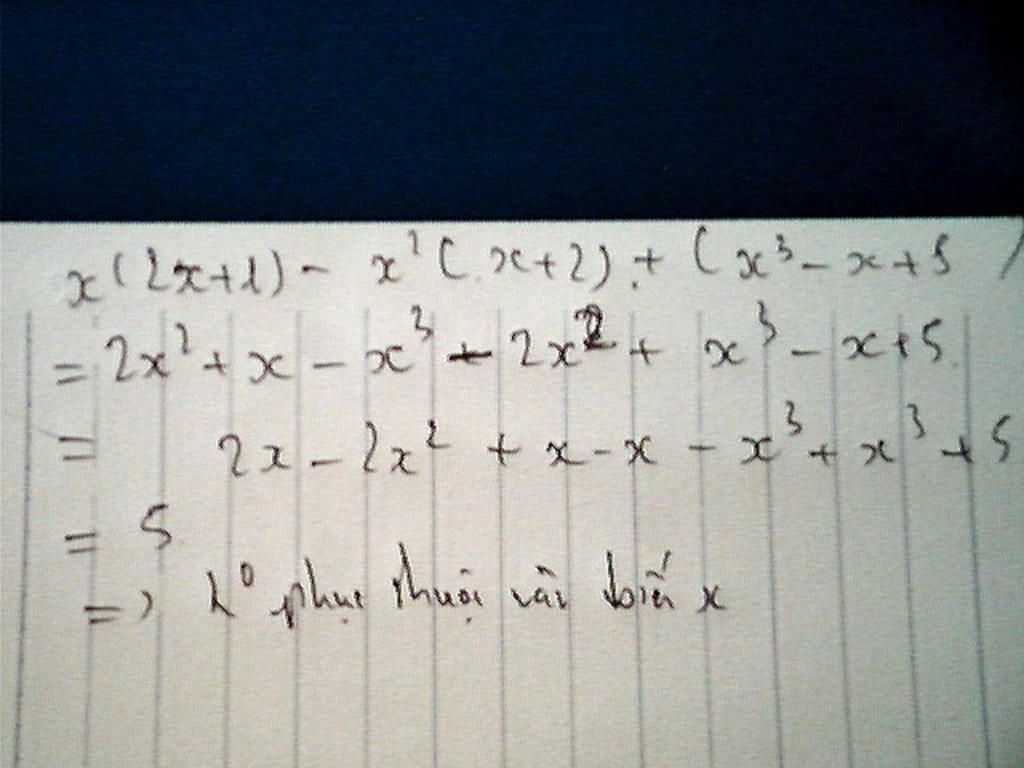 x(2x+1) - x²(x+2) + (x³ - x + 5)
= 2x² + x - x³ - 2x² + x³ - x + 5
= 2x - 2x² + x - x - x³ + x³ + 5
= 5
=> k⁰ phục thuộc vào biến x